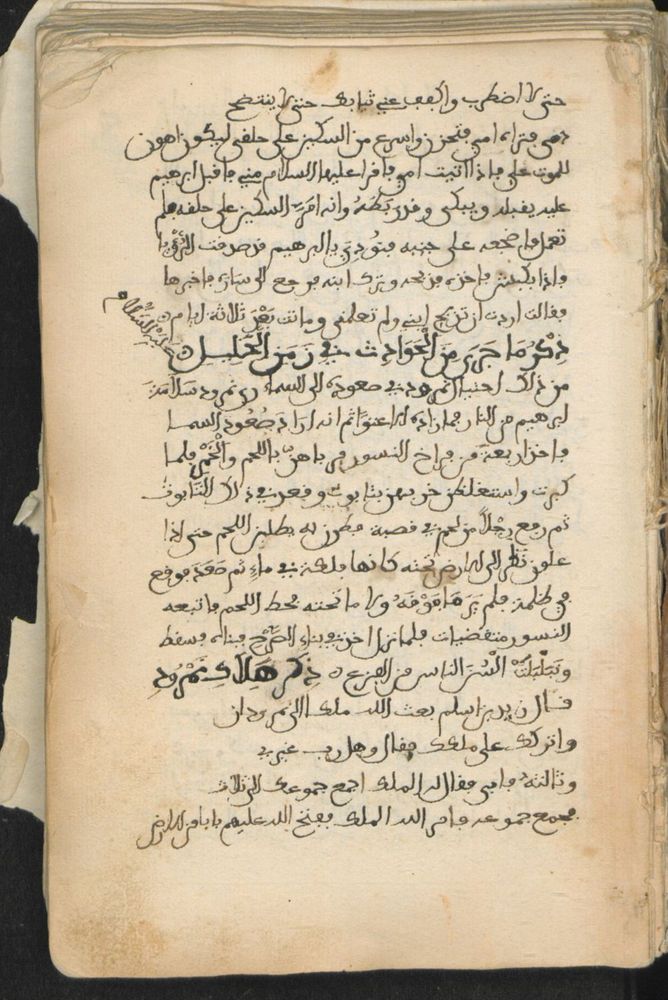 حتى لا اضطرب واكفف عني ثيابك حتى لا ينتضح
دمي فتراه امي فتحزن واسرع من السكين على حلقي ليكون اهون
للموت علي فاذا اتيت امي فاقرا عليها السلام مني فاقبل ابرهيم
عليه يقبله ويبكي وقد ربطه وانه امر السكين على حلقه فلم
تعمل فاضجعه على جنبه فنودي يا ابرهيم قد صدقت الرؤيا
واذا بكبش فاخذه فذبحه وترك ابنه فرجع الى سارة فاخبرها
فقالت اردت ان تذبح ابني ولم تعلمني وماتت بعد ثلاثة ايام
عليه السلام
ذكر ما جرى من الحوادث في زمن الخليل
من ذلك احتيال نمرود في صعوده الى السماء سلامة
ابرهيم من النار فما زاده الا عتوا ثم انه اراد صعود السما
فاخذ اربعة من فراخ النسور فرباهن باللحم والخمر فلما
كبرت واستغلظن بتابوت وقعد في ذلك التابوت
ثم رفع رجلا من لحم في قصبة فطرن به يطلبن اللحم حتى اذا
علون نظر الى الارض تحته كانها فلكة في ماء ثم صعد فوقع
في ظلمة فلم ير ما فوقه ولا ما تحته فحط اللحم فاتبعه
النسور منقضات فلما نزل اخذ في بناء الصرح فبناه فسقط
وتبلبلت السن الناس من الفزع ذكر هلاك نمرود
قال زيد بن اسلم بعث الله ملكا الى نمرود ان
واتركك على ملكك فقال وهل رب غيري
وثالثة فابى فقال له الملك اجمع جموعك الى ثلاث
فجمع جموعه فامر الله الملك ففتح الله عليهم بابا من البعوض